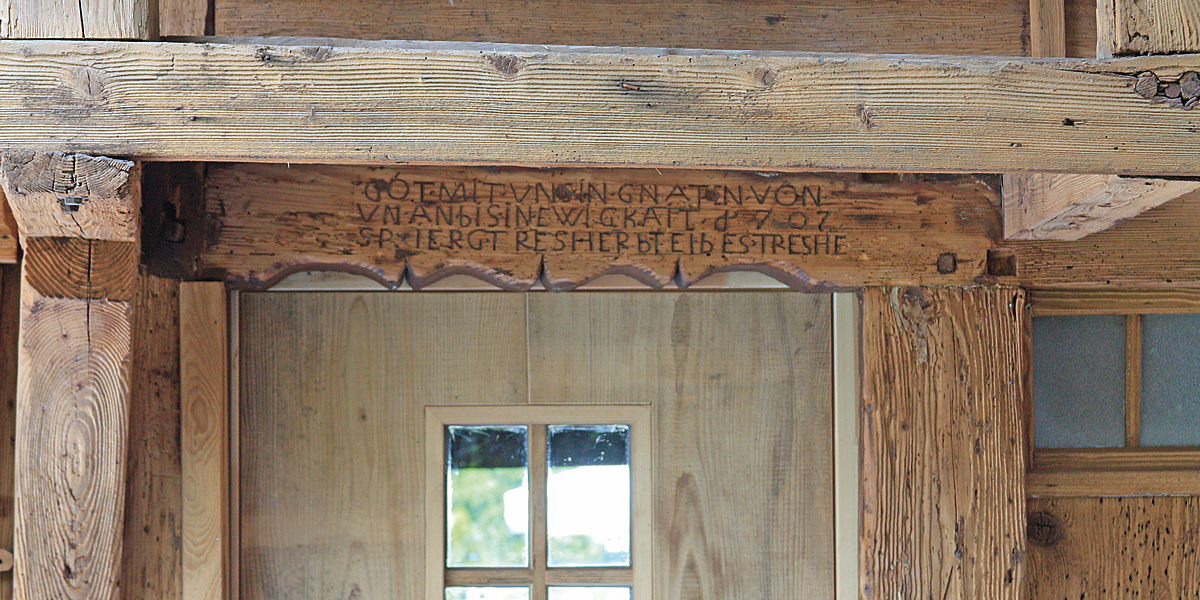 GÓT.MIT.VNSİN.GNATEN.VON
VN.ANbISINEWI.GKAFT. 1707
SP.IERGT RESHERbTEIb ES.TRESHE